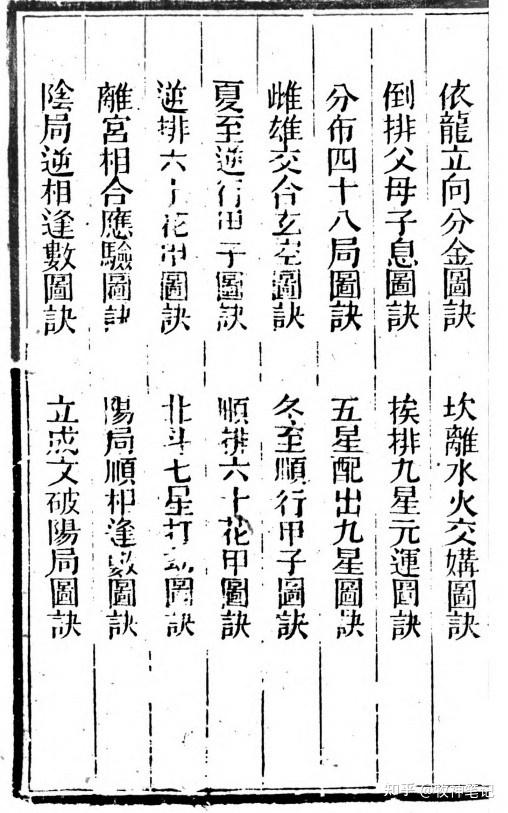 依龍立向分金圖訣 坎離水火交媾圖訣
倒排父母子息圖訣 挨排九星元運圖訣
分布四十八局圖訣 五星配出九星圖訣
雌雄交合玄空圖訣 冬至順行甲子圖訣
夏至逆行甲子圖訣 順排六十花甲圖訣
逆排六十花甲圖訣 北斗七星打劫圖訣
離宮相合應驗圖訣 陽局順相逢數圖訣
陰局逆相逢數圖訣 立成文破陽局圖訣
知乎 @牧神笔记